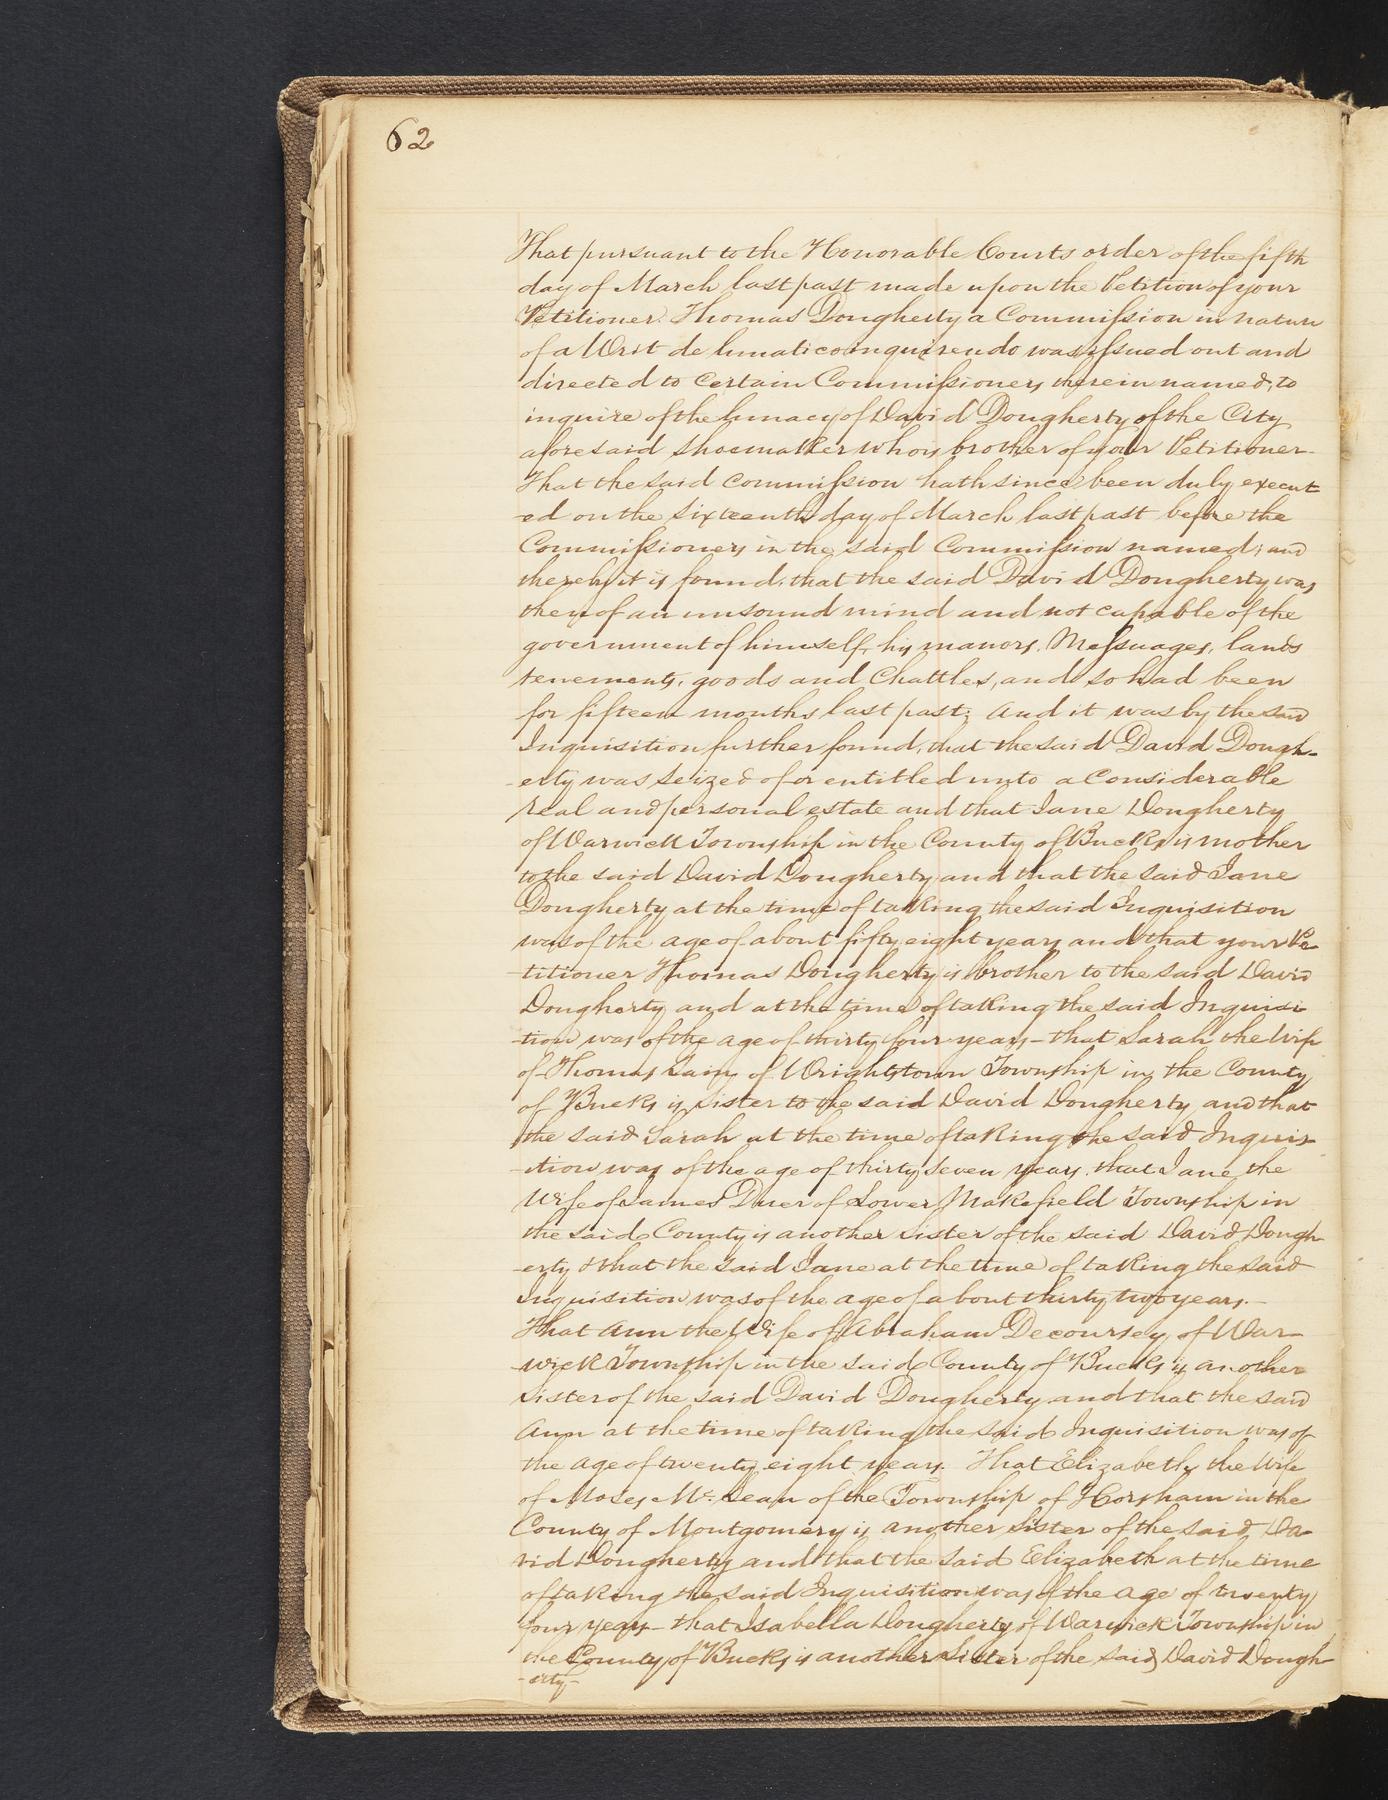 62
That pursuant to the Honorable Courts order of the fifth
day of March last past made upon the Petition of your
Petitioner. Thomas Dougherty a Commission in nature
of a Writ de lunatico inquirendo was issued out and
directed to certain Commissioners therein named, to
inquire of the lunacy of David Dougherty of the City
aforesaid shoemaker who is brother of your Petitioner-
That the said Commission hath since been duly execut
-ed on the sixteenth day of March last past before the
Commissioners in the said Commission named; and
thereby it is found, that the said David Dougherty was
then of an unsound mind and not capable of the
government of himself, his manors, Messuages, lands
tenements, goods and Chattles, and so had been
for fifteen months last past; And it was by the said
Inquisition further found, that the said David Dough-
-erty was seized of or entitled unto a considerable
real and personal estate and that Jane Dougherty
of Warwick Township in the County of Bucks is mother
to the said David Dougherty and that the said Jane
Dougherty at the time of taking the said Inquisition
was of the age of about fifty eight years and that your Pe-
-titioner Thomas Dougherty is brother to the said David
Dougherty and at the time of taking the said Inquisi-
-tion was of the age of thirty four years - that Sarah the Wife
of Thomas of Wrightstown Township in the County
of Bucks is sister to the said David Dougherty and that
the said Sarah at the time of taking the said Inquis-
-ition was of the age of thirty seven years. that Jane the
Wife of James Duer of Lower Makefield Township in
the said County is another sister of the said David Dough-
-erty & that the said Jane at the time of taking the said
Inquisition was of the age of about thirty two years.-
That Ann the Wife of Abraham Decoursey of War-
-wick Township in the said County of Bucks is another
sister of the said David Dougherty and that the said
Ann at the time of taking the said Inquisition was of
the age of twenty eight years. That Elizabeth the Wife
of Moses Mc. Lean of the Township of Horsham in the
County of Montgomery is another sister of the said Da-
vid Dougherty and that the said Elizabeth at the time
of taking the said Inquisition was of the age of twenty
four years - that Isabella Dougherty of Warwick Township in
the County of Bucks is another Sister of the said David Dough-
-erty-